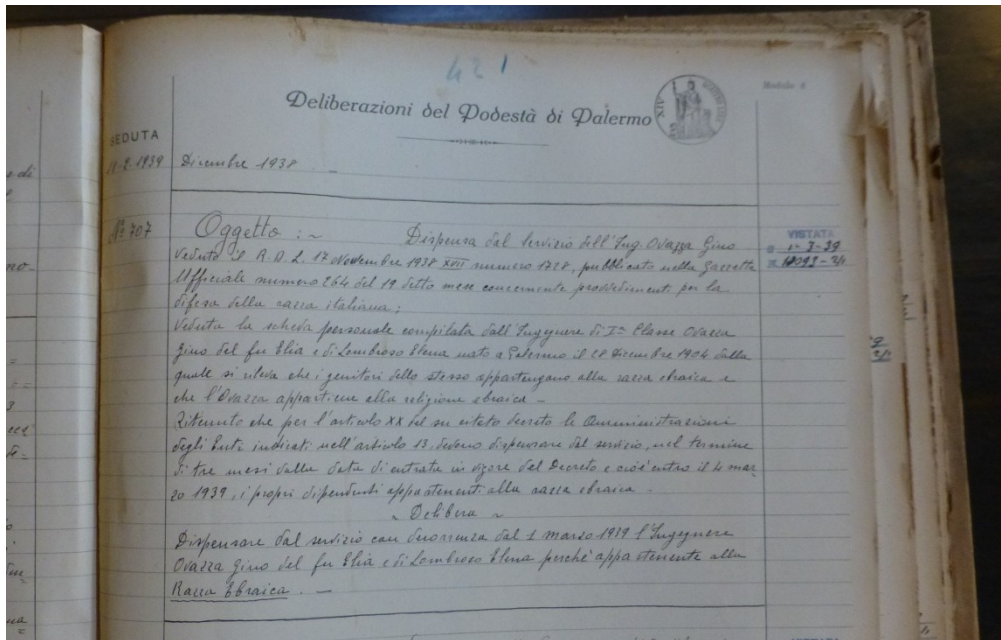 421
Deliberazioni del Podestà di Palermo
Modulo 4
SEDUTA
11-2-1939 Dicembre 1938
Nº 707 Oggetto :~ Dispensa dal servizio dell'Ing. Ovazza Gino
VISTATA
1-3-39
Veduto il R.D.L. 17 Novembre 1938 XVII numero 1728, pubblicato nella Gazzetta
Ufficiale numero 264 del 19 detto mese concernente provvedimenti per la
difesa della razza italiana;
Veduta la scheda personale compilata dall'Ingegnere di Iª Classe Ovazza
Gino del fu Elia e di Lombroso Elena nato a Palermo il 28 Dicembre 1904 dalla
quale si rileva che i genitori dello stesso appartengano alla razza ebraica e
che l'Ovazza appartiene alla religione ebraica -
Ritenuto che per l'articolo XX del su citato decreto le Amministrazioni
degli Enti indicati nell'articolo 13, devono dispensare dal servizio, nel termine
di tre mesi dalla data di entrata in vigore del Decreto e cioè entro il 4 mar
zo 1939, i propri dipendenti appartenenti alla razza ebraica.
~ Delibera ~
Dispensare dal servizio con decorrenza dal 1 marzo 1939 l'Ingegnere
Ovazza Gino del fu Elia e di Lombroso Elena perchè appartenente alla
Razza Ebraica. -